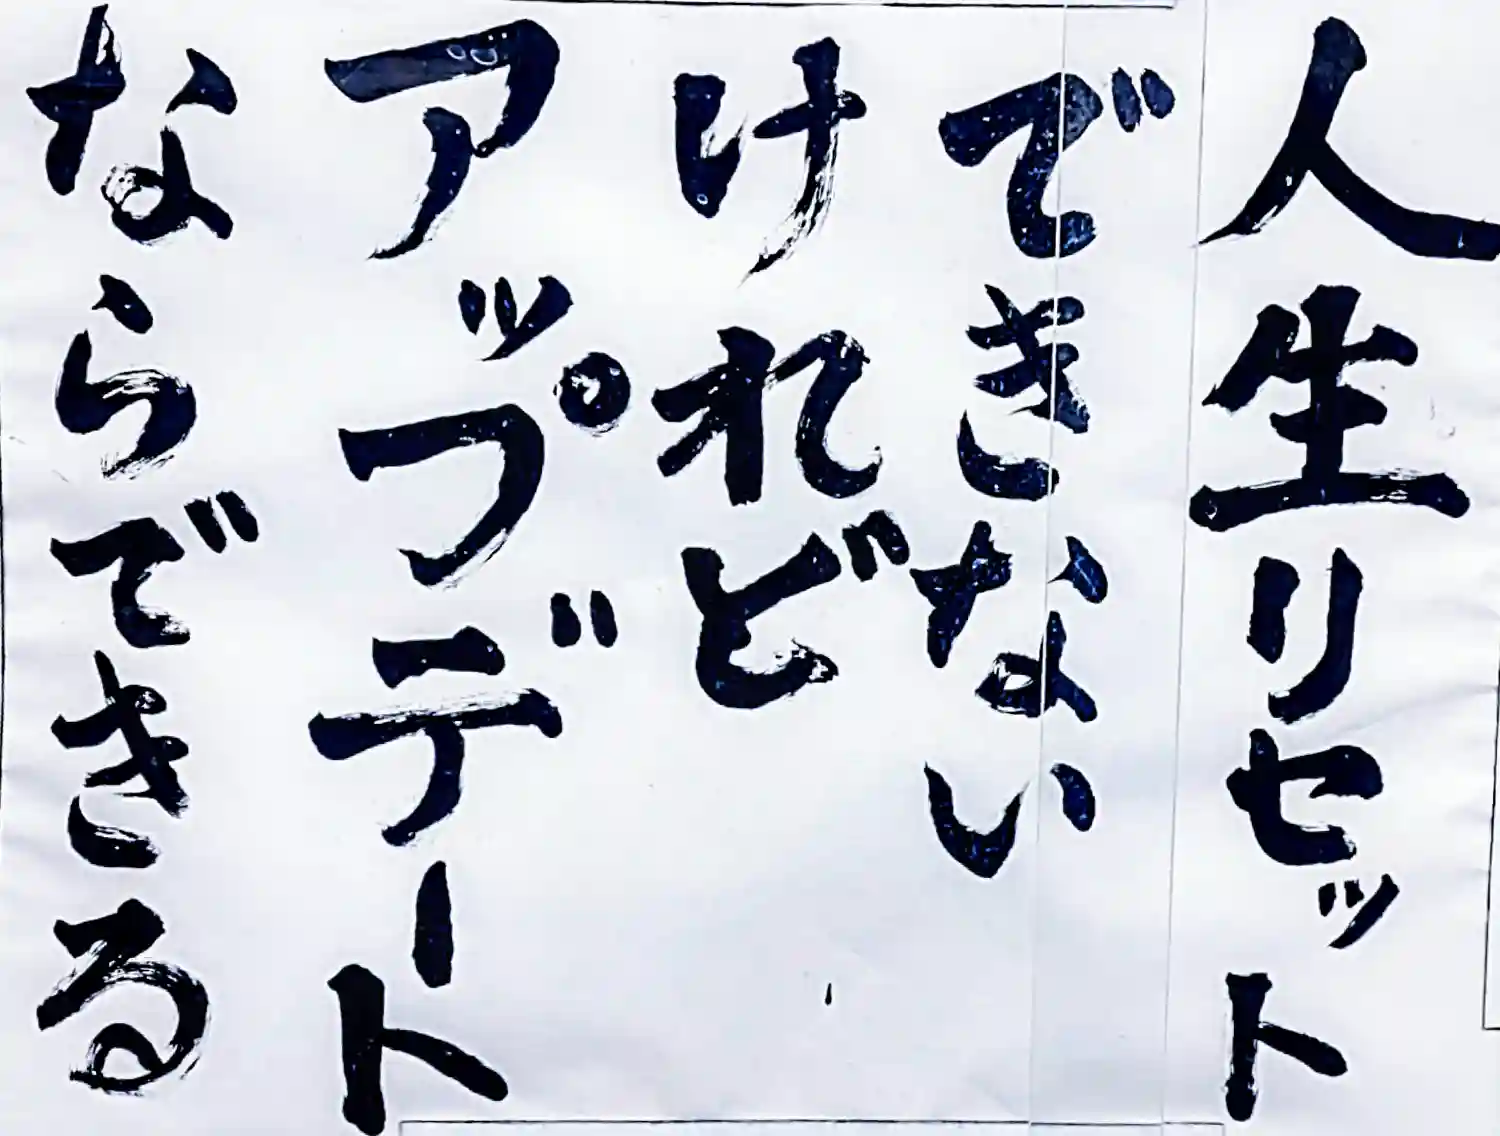 人生リセット
できない
けれど
アップデート
ならできる